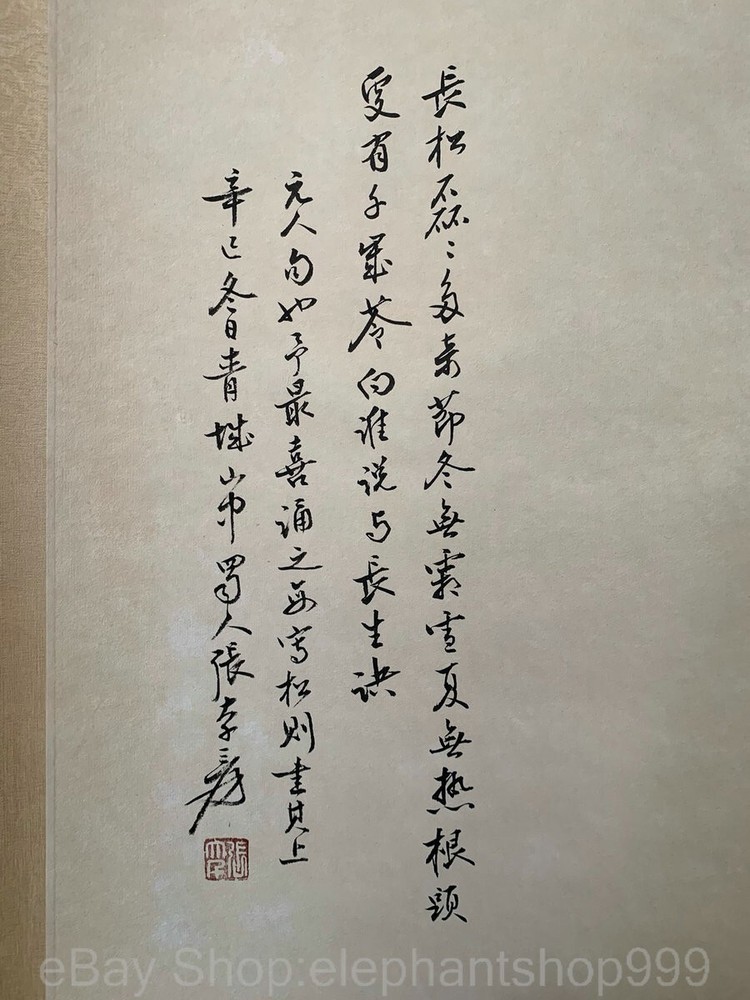 長松磊〻多奇節冬無霜雪夏無熱根頭
更有千歲苓向誰說与長生訣
元人句也予最喜誦之每寫松則書其上
辛巳冬日青城山中蜀人張大千爰
張大千
eBay Shop:elephantshop999